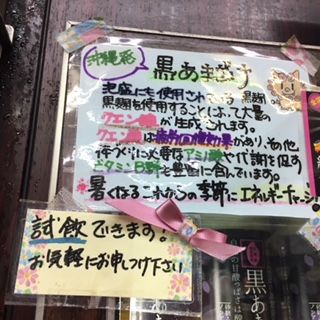 沖縄発
黒あまざけ
泡盛にも使用されている黒麹
黒麹を使用することによって大量の
クエン酸が生成されます。
クエン酸は疲労回復効果があり、その他
体づくりに必要なアミノ酸や代謝を促す
ビタミンB群も豊富に含んでいます。
暑くなるこれからの季節にエネルギーチャージ!
試飲できます!
お気軽にお申しつけ下さい
黒あ